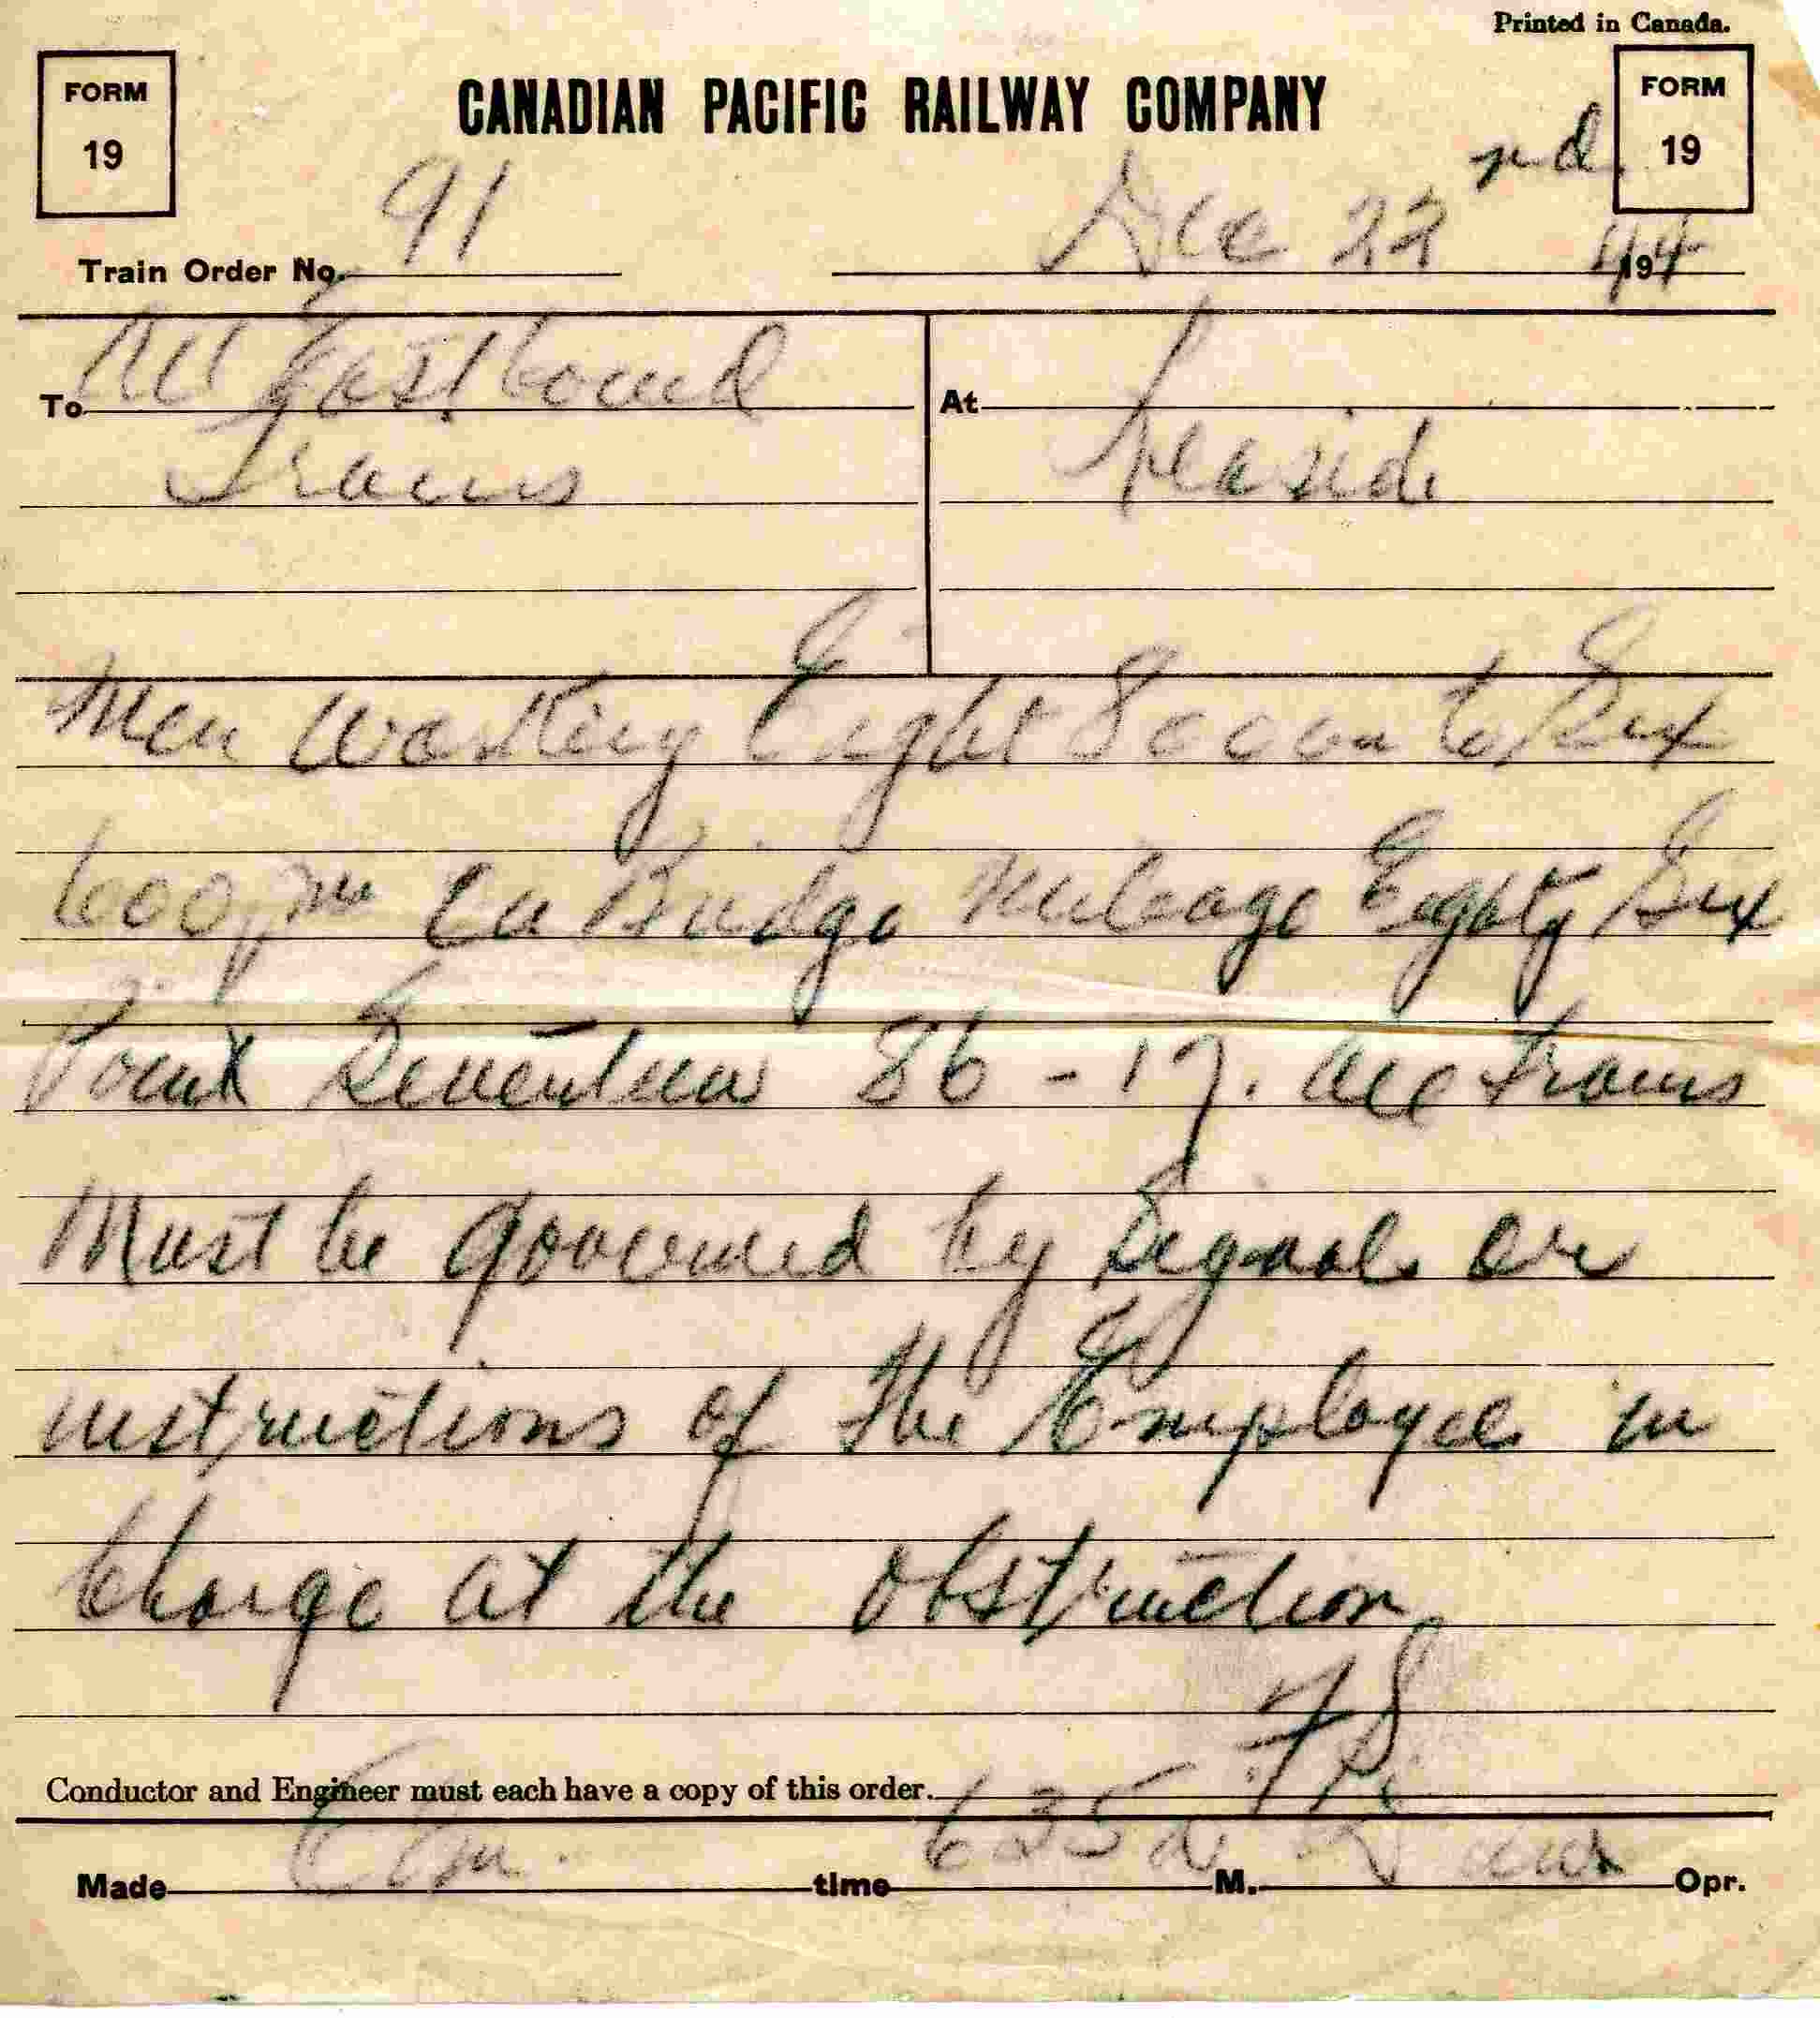 Printed in Canada.
FORM 19
CANADIAN PACIFIC RAILWAY COMPANY
FORM 19
Train Order No. 91 Dec 22nd 1944
To All Eastbound At
Trains Leaside
Men Working Eight 800am to Six
600pm On Bridge Mileage Eighty Six
Point Seventeen 86-17. All Trains
Must be governed by Signals or
instructions of the Employee in
Charge at the Obstruction
Conductor and Engineer must each have a copy of this order.
Made Com. time 635 a M. Opr.